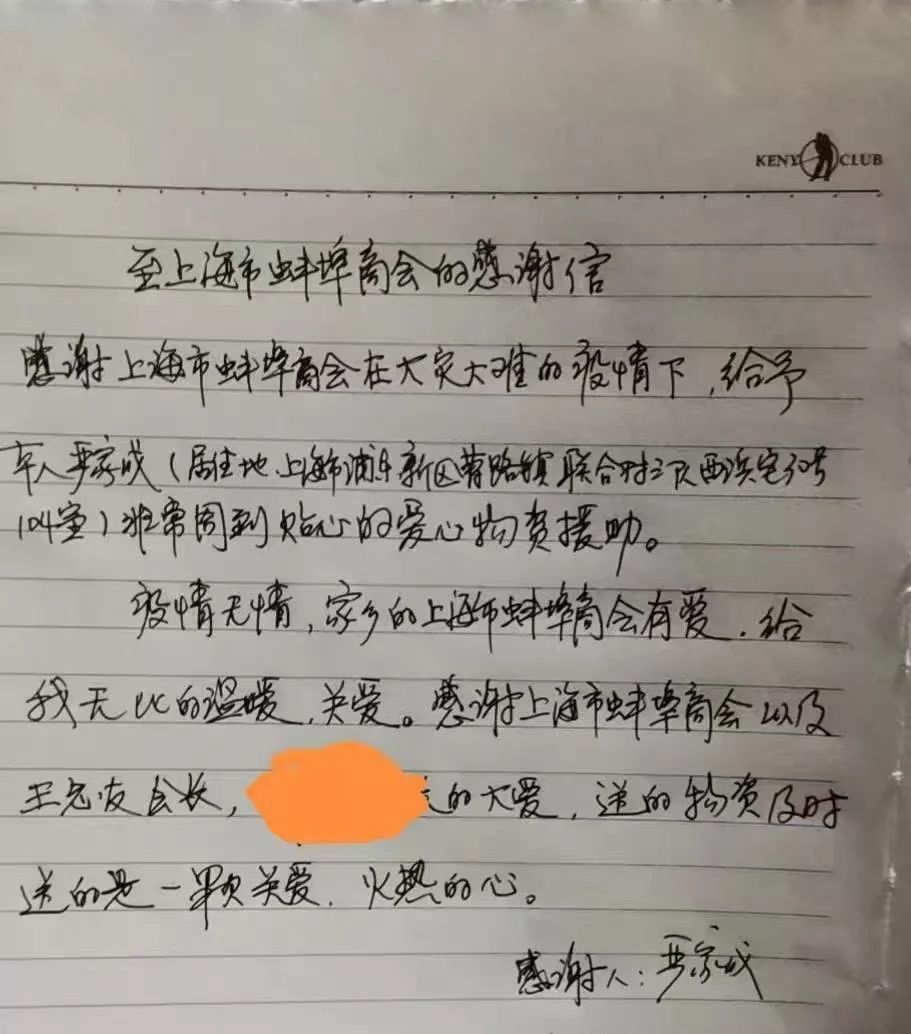 KENY CLUB
至上海市蚌埠商会的感谢信
感谢上海市蚌埠商会在大灾大难的疫情下,给予
本人严家成(居住地上海市浦东新区蔡路镇联合村三队西浜宅30号
104室)非常周到贴心的爱心物资援助。
疫情无情,家乡的上海市蚌埠商会有爱.给
我无比的温暖.关爱。感谢上海市蚌埠商会以及
王会长,的大爱.送的物资及时
送的是一颗关爱.火热的心。
感谢人:严家成